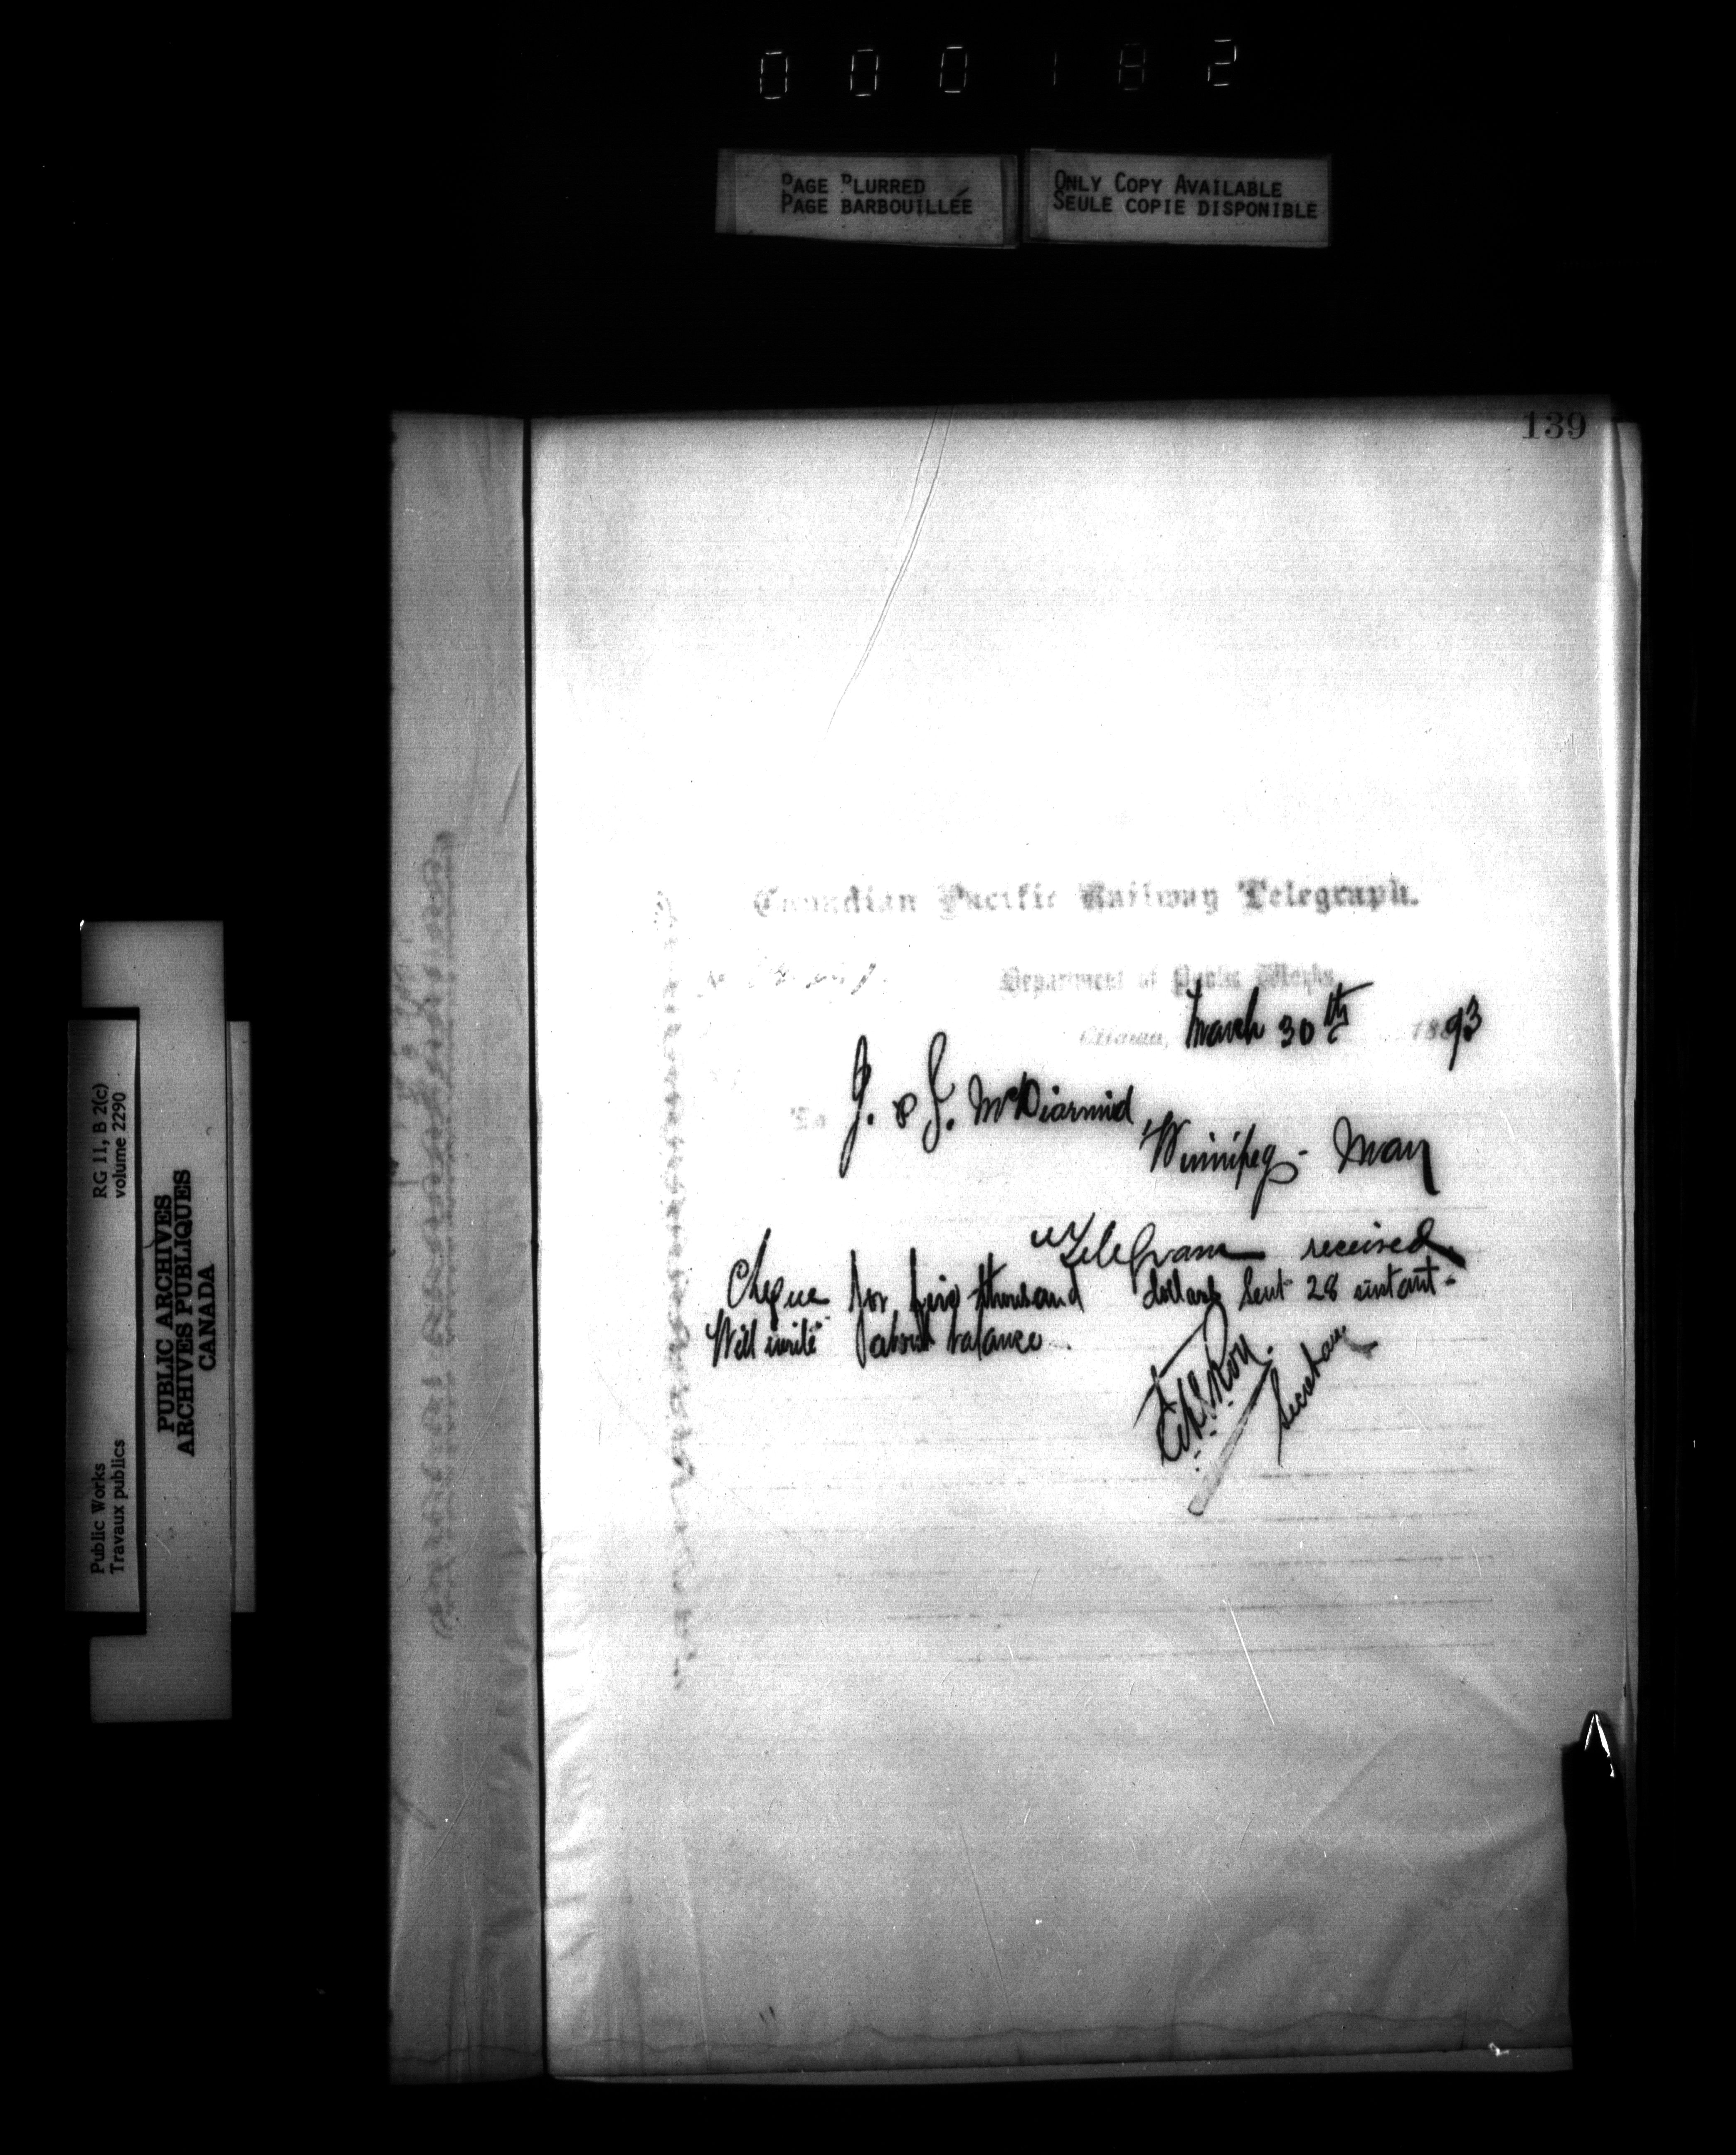 000182
PAGE BLURRED
PAGE BARBOUILLÉE
ONLY COPY AVAILABLE
SEULE COPIE DISPONIBLE
139
Canadian Pacific Railway Telegraph.
Department of Public Works
Ottawa, March 30th 1893
To J. & J. McDiarmid,
Winnipeg - Man
Telegram received.
Cheque for five thousand dollars sent 28 instant -
Will write about balance.
E.F.E. Roy.
Secretary
Public Works
Travaux publics
RG 11, B 2(c)
volume 2290
PUBLIC ARCHIVES
ARCHIVES PUBLIQUES
CANADA